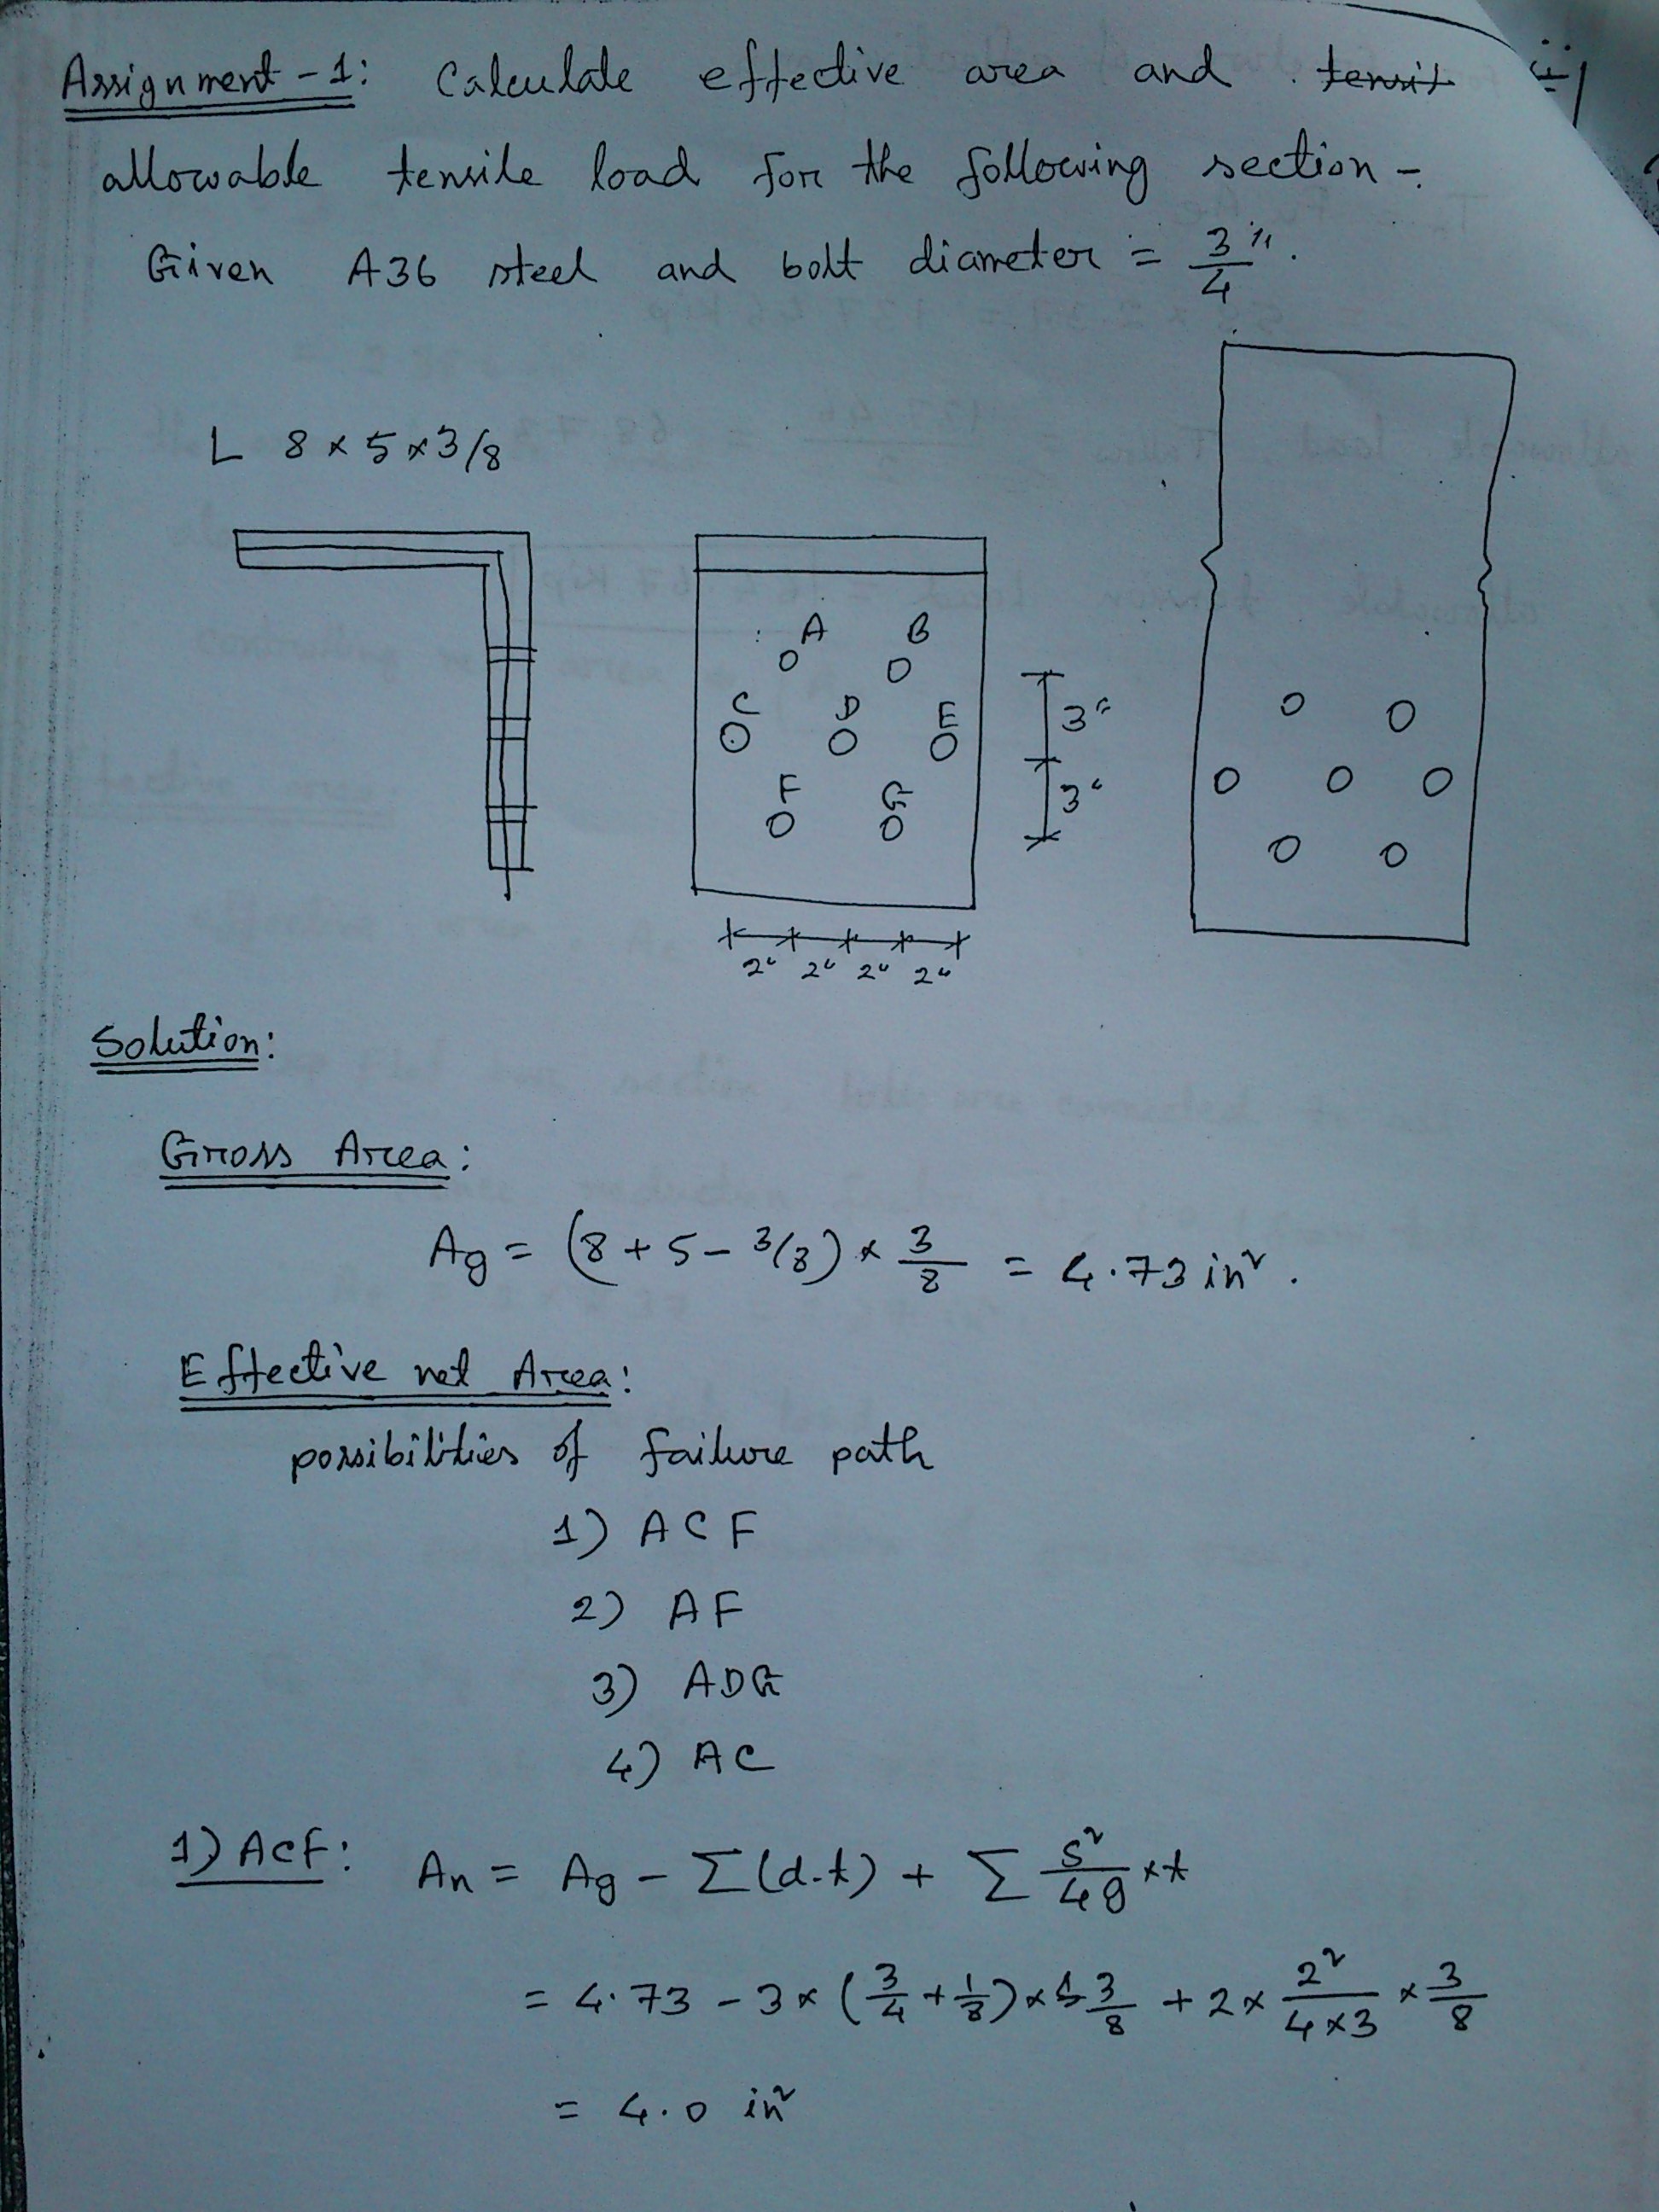 Assignment-1: Calculate effective area and tensil
allowable tensile load for the following section-
Given A36 steel and bolt diameter = 3/4".
L 8 x 5 x 3/8
A B
C D E
F G
3"
3"
2" 2" 2" 2"
Solution:
Gross Area:
Ag = (8 + 5 - 3/8) x 3/8 = 4.73 in².
Effective net Area:
possibilities of failure path
1) ACF
2) AF
3) ADG
4) AC
1) ACF: An = Ag - Σ(d.t) + Σ s²/4g x t
= 4.73 - 3 x (3/4 + 1/8) x 3/8 + 2 x 2²/4x3 x 3/8
= 4.0 in²